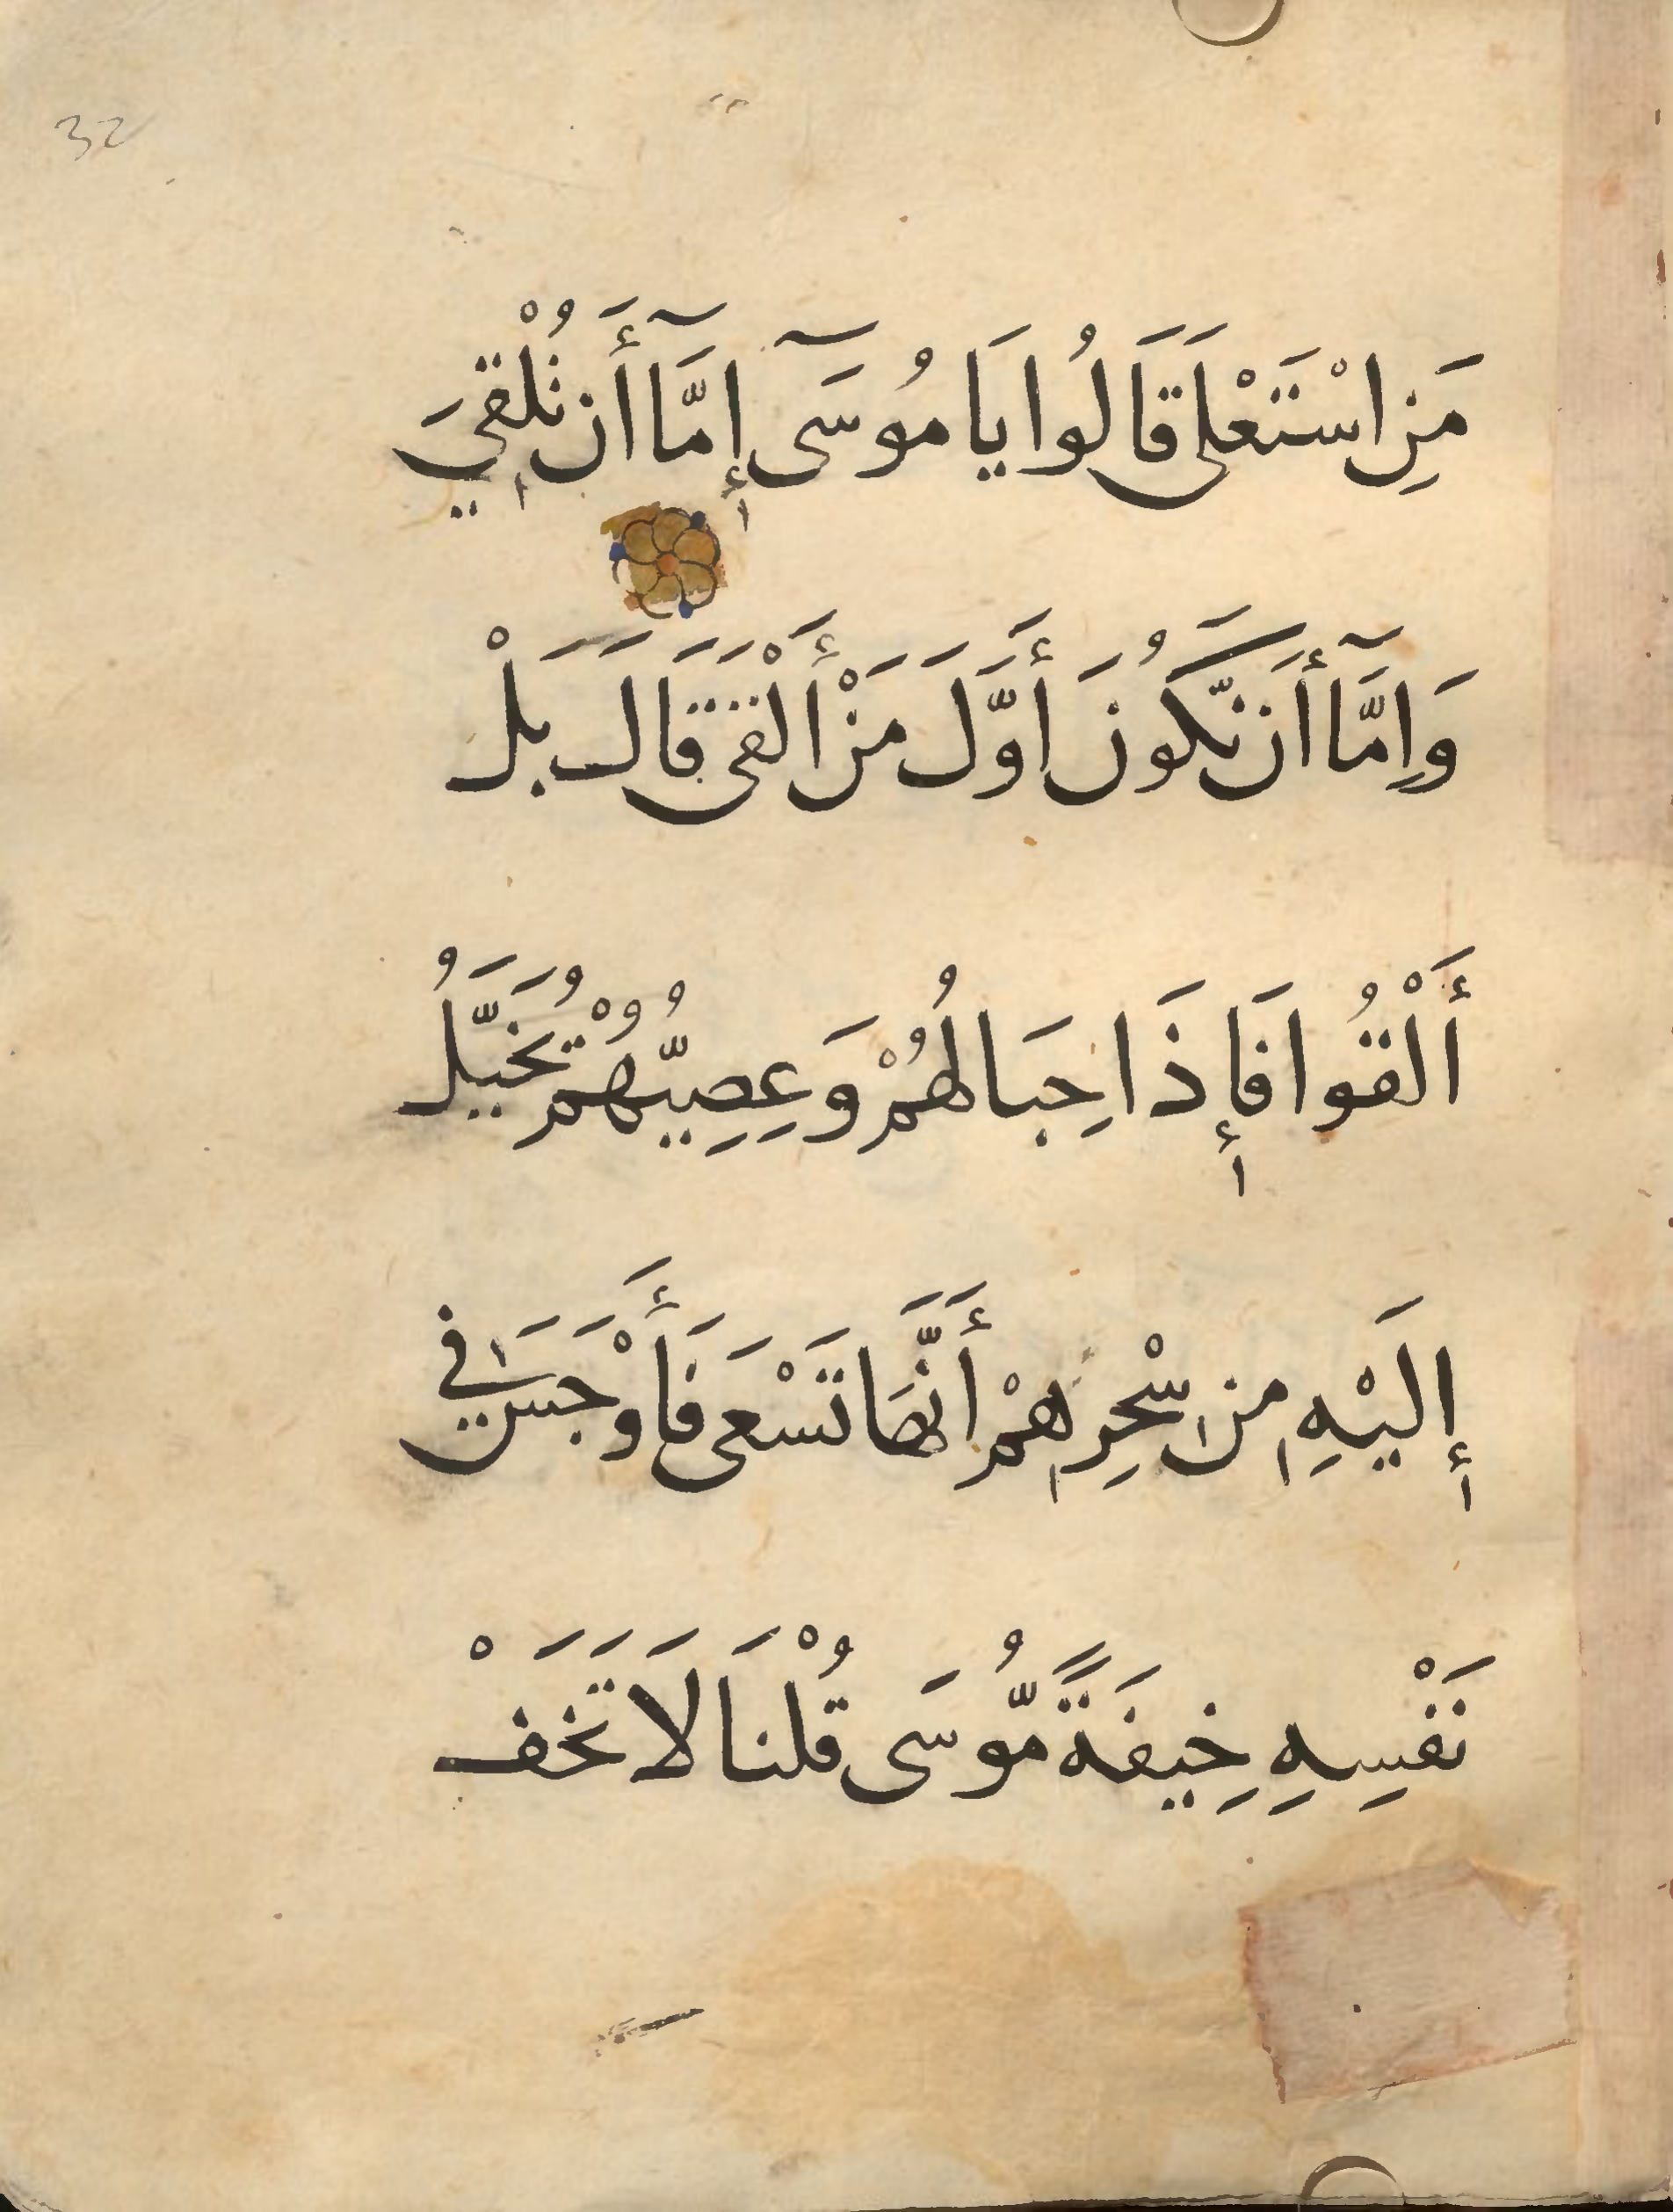 32
مَنِ اسْتَعْلَى قَالُوا يَا مُوسَىٓ إِمَّآ أَن نُلْقِيَ
وَإِمَّآ أَن نَّكُونَ أَوَّلَ مَنْ أَلْقَى قَالَ بَلْ
أَلْقُوا فَإِذَا حِبَالُهُمْ وَعِصِيُّهُمْ تُخَيَّلُ
إِلَيْهِ مِن سِحْرِهِمْ أَنَّهَا تَسْعَى فَأَوْجَسَ فِي
نَفْسِهِ خِيفَةً مُّوسَى قُلْنَا لَا تَخَفْ